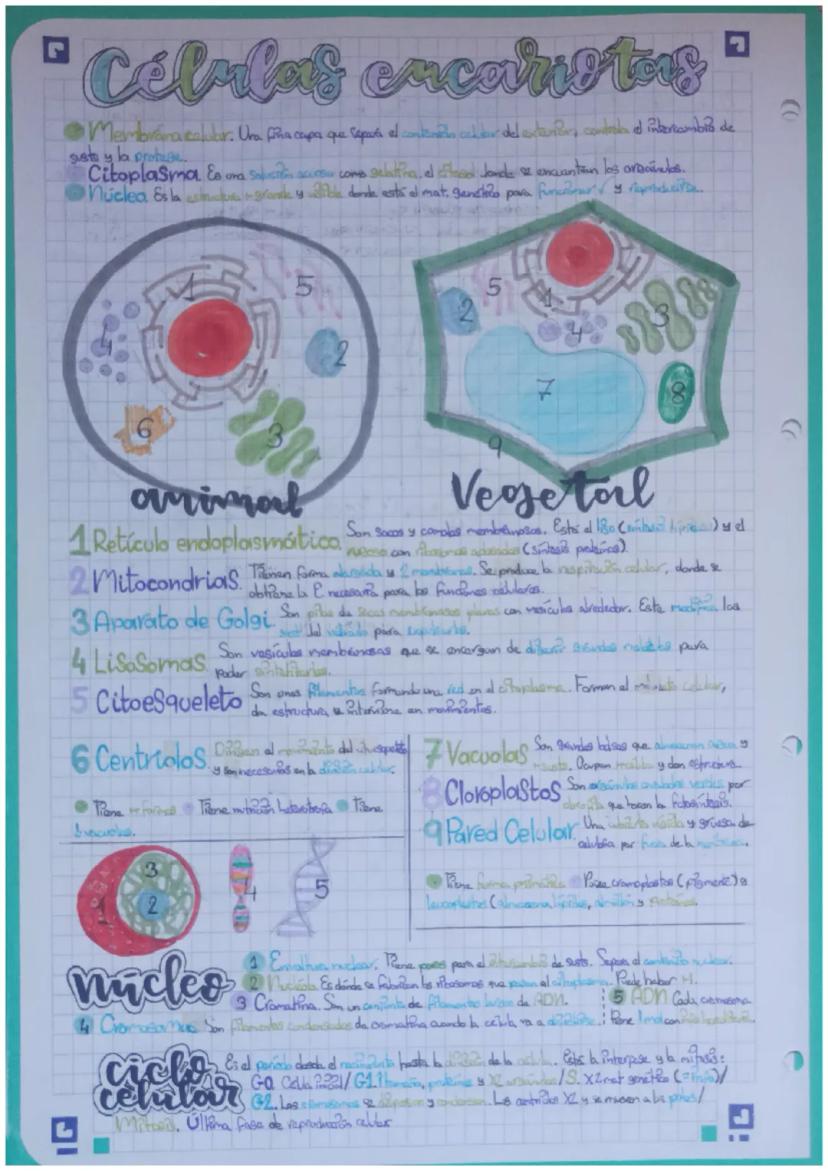 Células eucariotas
Membrana celular. Una fina capa que separa el contenido celular del exterior, controla el intercambio de
susts y la protege.
Citoplasma. Es una solución acuosa como gelatina, el citosol donde se encuentran los orgánulos.
Núcleo. Es la estructura + grande y visible donde está el mat. genético para funcionar y reproducirse.
1 5 4 2 6 3
5 2 1 4 3 7 8 9
animal Vegetal
1 Retículo endoplasmático. Son sacos y canales membranosos. Está el liso (síntesis lípidos) y el
rugoso con ribosomas adosados (síntesis proteínas).
2 Mitocondrias. Tienen forma alargada y 2 membranas. Se produce la respiración celular, donde se
obtiene la E necesaria para las funciones celulares.
3 Aparato de Golgi. Son pilas de sacos membranosos planos con vesículas alrededor. Este modifica las
sust del retículo para
4 Lisosomas Son vesículas membranosas que se encargan de digerir grandes moléculas para
poder
5 Citoesqueleto Son unos filamentos formando una red en el citoplasma. Forman el celular,
dan estructura, e interviene en movimientos.
6 Centriolos. Dirigen el movimiento del citoesqueleto
y son necesarios en la división celular.
Tiene formas Tiene nutrición heterótrofa Tiene
vacuolas.
7 Vacuolas Son grandes bolsas que almacenan agua y
susts. Ocupan y dan estructura.
8 Cloroplastos Son orgánulos ovalados verdes por
clorofila que hacen la fotosíntesis.
9 Pared Celular. Una cubierta rígida y gruesa de
celulosa por fuera de la membrana.
Tiene forma prismática Posee cromoplastos (pigmento) y
leucoplastos (almacena lípidos, almidón y proteínas.
1 3 2 4 5
núcleo
1 Envoltura nuclear. Tiene poros para el intercambio de susts. Separa el contenido nuclear.
2 Nucléolo Es dónde se fabrican los ribosomas que pasan al citoplasma. Puede haber +1.
3 Cromatina. Son un conjunto de filamentos largos de ADN. 5 ADN Cada cromosoma
4 Cromosomas Son filamentos condensados de cromatina cuando la célula va a dividirse. Tiene 1 mol con
ciclo celular Es el periodo desde el nacimiento hasta la división de la célula. Está la interfase y la mitosis:
G0. / G1. tamaño, proteínas y X2 orgánulos / S. X2 mat genético /
G2. Los cromosomas se y condensan. Los centriolos X2 y se mueven a los polos /
Mitosis. Última fase de reproducción celular